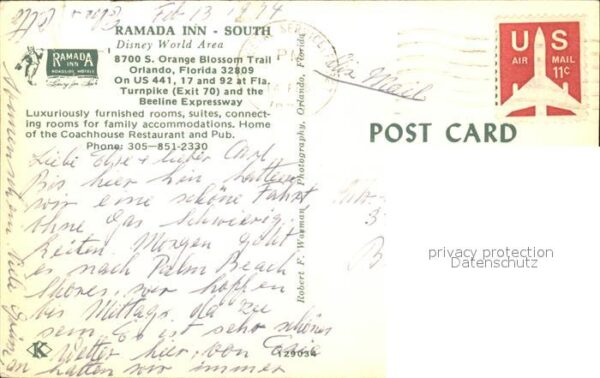 Feb 13 1974
RAMADA INN - SOUTH
Disney World Area
8700 S. Orange Blossom Trail
Orlando, Florida 32809
On US 441, 17 and 92 at Fla.
Turnpike (Exit 70) and the
Beeline Expressway
Luxuriously furnished rooms, suites, connect-
ing rooms for family accommodations. Home
of the Coachhouse Restaurant and Pub.
Phone: 305-851-2330
RAMADA
INN
ROADSIDE HOTELS
Liebe Else + lieber Carl
Bis hier hin hatten
wir eine schöne Fahrt,
ohne Gas Schwierig-
keiten. Morgen geht
es nach Palm Beach
Shores, wir hoffen
bis Mittags da zu
sein. Es ist sehr schönes
Wetter hier, von
an hatten wir immer
K
129034
Robert F. Photography, Orlando, Florida
Via Mail
PM
US
AIR MAIL
11c
POST CARD
privacy protection
Datenschutz